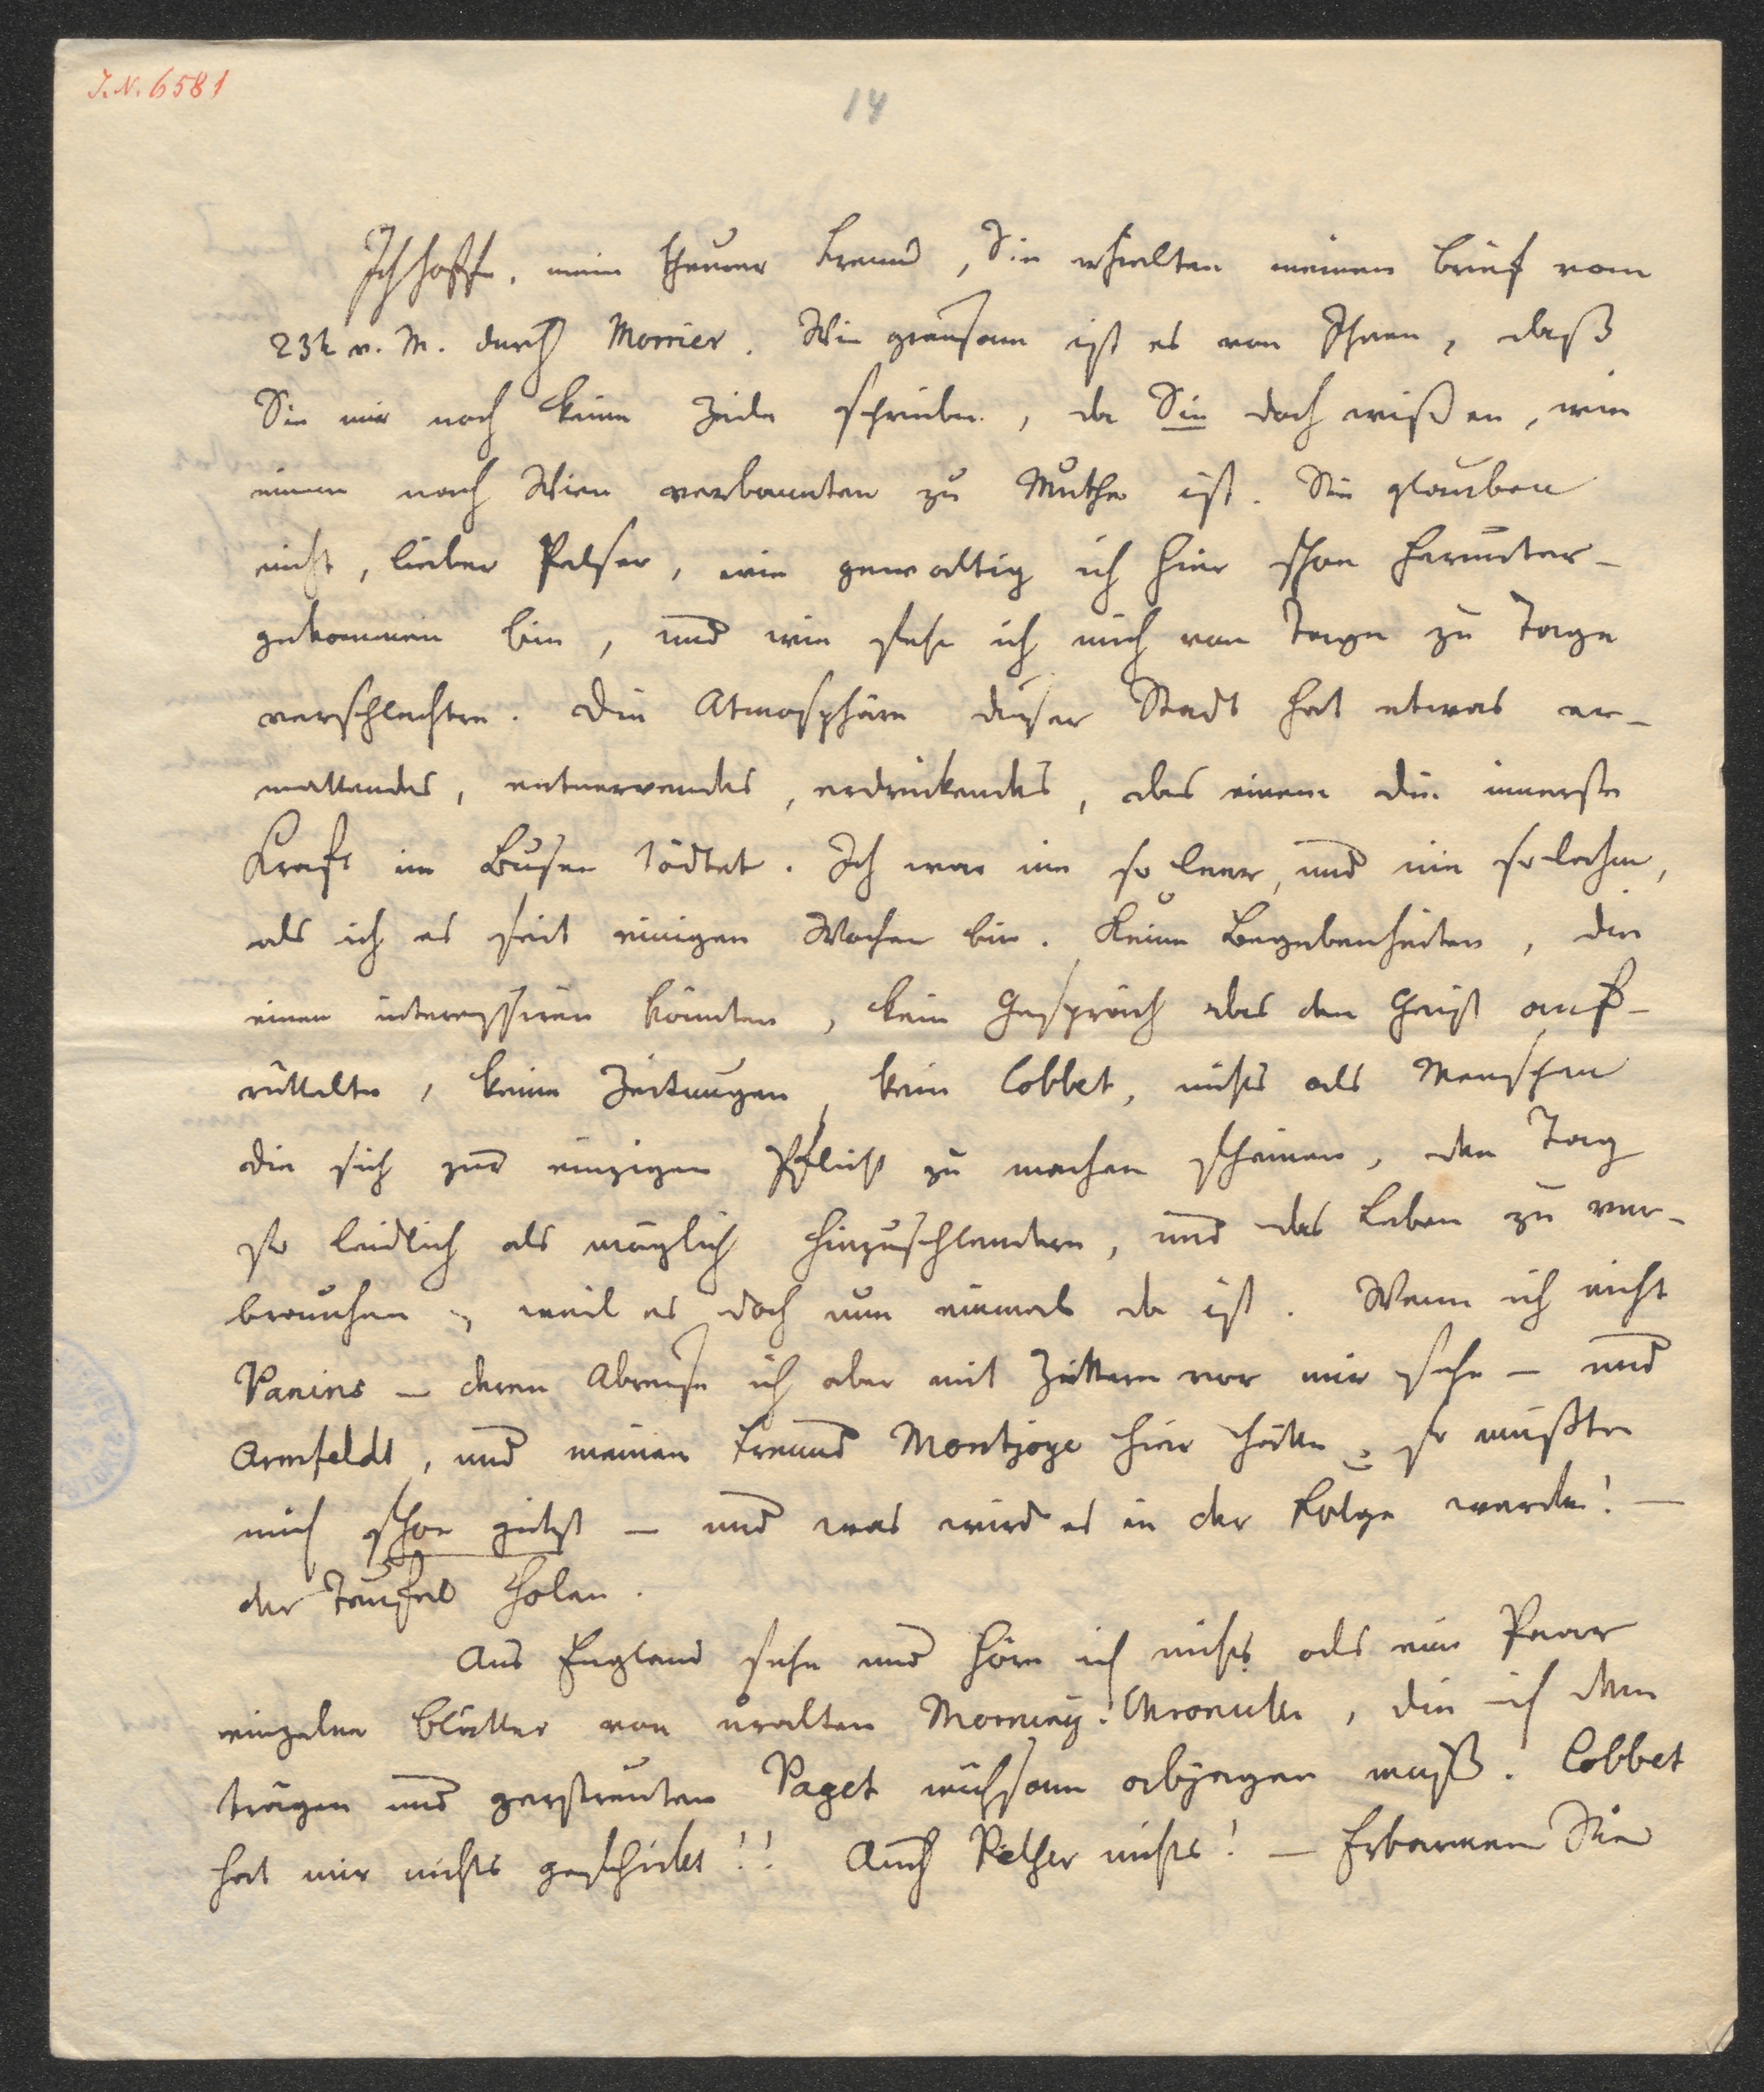 J.N. 6581
14
Ich hoffe, mein theurer Freund, Sie erhielten meinen Brief vom
23t v. M. durch Morrier. Wie grausam ist es von Ihnen, daß
Sie mir noch keine Zeile schrieben, da Sie doch wißen, wie
einem nach Wien verbannten zu Muthe ist. Sie glauben
nicht, lieber Pelser, wie gewaltig ich hier schon herunter-
gekommen bin, und wie sehr ich mich von Tage zu Tage
verschlechtre. Die Atmosphäre dieser Stadt hat etwas er-
mattendes, entnervendes, erdrückendes, das einem die innerste
Kraft im Busen tödtet. Ich war nie so leer, und nie so lahm,
als ich es seit einigen Wochen bin. Keine Begebenheiten, die
einen interessiren könnten, kein Gespräch das den Geist auf-
rüttelte, keine Zeitungen, kein Cobbet, nichts als Menschen
die sich zur einzigen Pflicht zu machen scheinen, den Tag
so leidlich als möglich hinzuschlendern, und das Leben zu ver-
brauchen, weil es doch nun einmal da ist. Wenn ich nicht
Panins – deren Abreise ich aber mit Zittern vor mir sehe – und
Armfeldt, und meinen Freund Montjoye hier hätte, so müßte
mich schon jetzt – und was wird es in der Folge werden! –
der Teufel holen.
Aus England sehe und höre ich nichts als ein Paar
einzelne Blätter von uralten Morning-Chronicle, die ich dem
trägen und zerstreuten Paget mühsam abjagen muß. Cobbet
hat mir nichts geschickt!! Auch Pelser nichts! – Erbarmen Sie